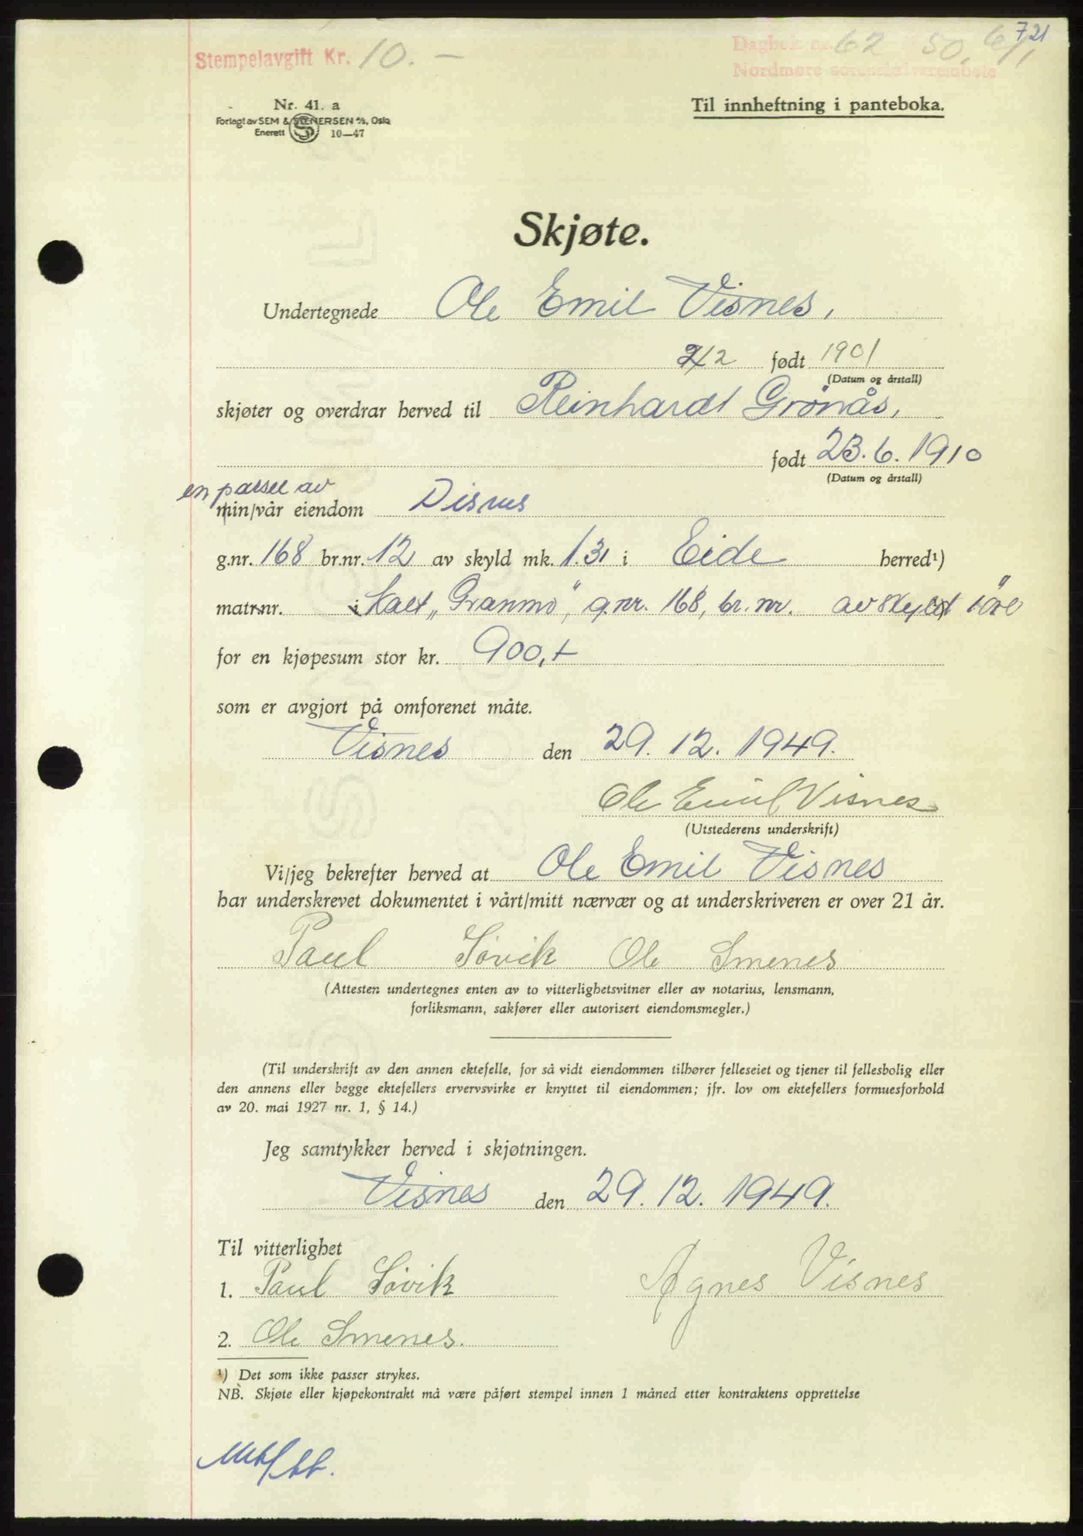 721
Stempelavgift Kr. 10.-
Dagbok nr. 62 50, 6/1
Nordmøre sorenskriverembete
Nr. 41. a
Forlagt av SEM & STENERSEN A/S, Oslo
Enerett 10-47
Til innheftning i panteboka.
Skjøte.
Undertegnede Ole Emil Visnes,
2/2 født 1901
(Datum og årstall)
skjøter og overdrar herved til Reinhardt Grønås,
født 23.6.1910
(Datum og årstall)
en parsel av
min/vår eiendom Disnes
g.nr. 168 br.nr. 12 av skyld mk. 1.31 i Eide herred¹)
matr.nr. i kalt „Granmo", g.nr. 168, br. nr. av skyld øre
for en kjøpesum stor kr. 900,+
som er avgjort på omforenet måte.
Visnes den 29. 12. 1949.
Ole Emil Visnes
(Utstederens underskrift)
Vi/jeg bekrefter herved at Ole Emil Visnes
har underskrevet dokumentet i vårt/mitt nærvær og at underskriveren er over 21 år.
Paul Søvik Ole Smenes
(Attesten undertegnes enten av to vitterlighetsvitner eller av notarius, lensmann,
forliksmann, sakfører eller autorisert eiendomsmegler.)
(Til underskrift av den annen ektefelle, for så vidt eiendommen tilhører felleseiet og tjener til fellesbolig eller
den annens eller begge ektefellers ervervsvirke er knyttet til eiendommen; jfr. lov om ektefellers formuesforhold
av 20. mai 1927 nr. 1, § 14.)
Jeg samtykker herved i skjøtningen.
Visnes den 29. 12. 1949.
Til vitterlighet
1. Paul Søvik Agnes Visnes
2. Ole Smenes.
¹) Det som ikke passer strykes.
NB. Skjøte eller kjøpekontrakt må være påført stempel innen 1 måned etter kontraktens opprettelse